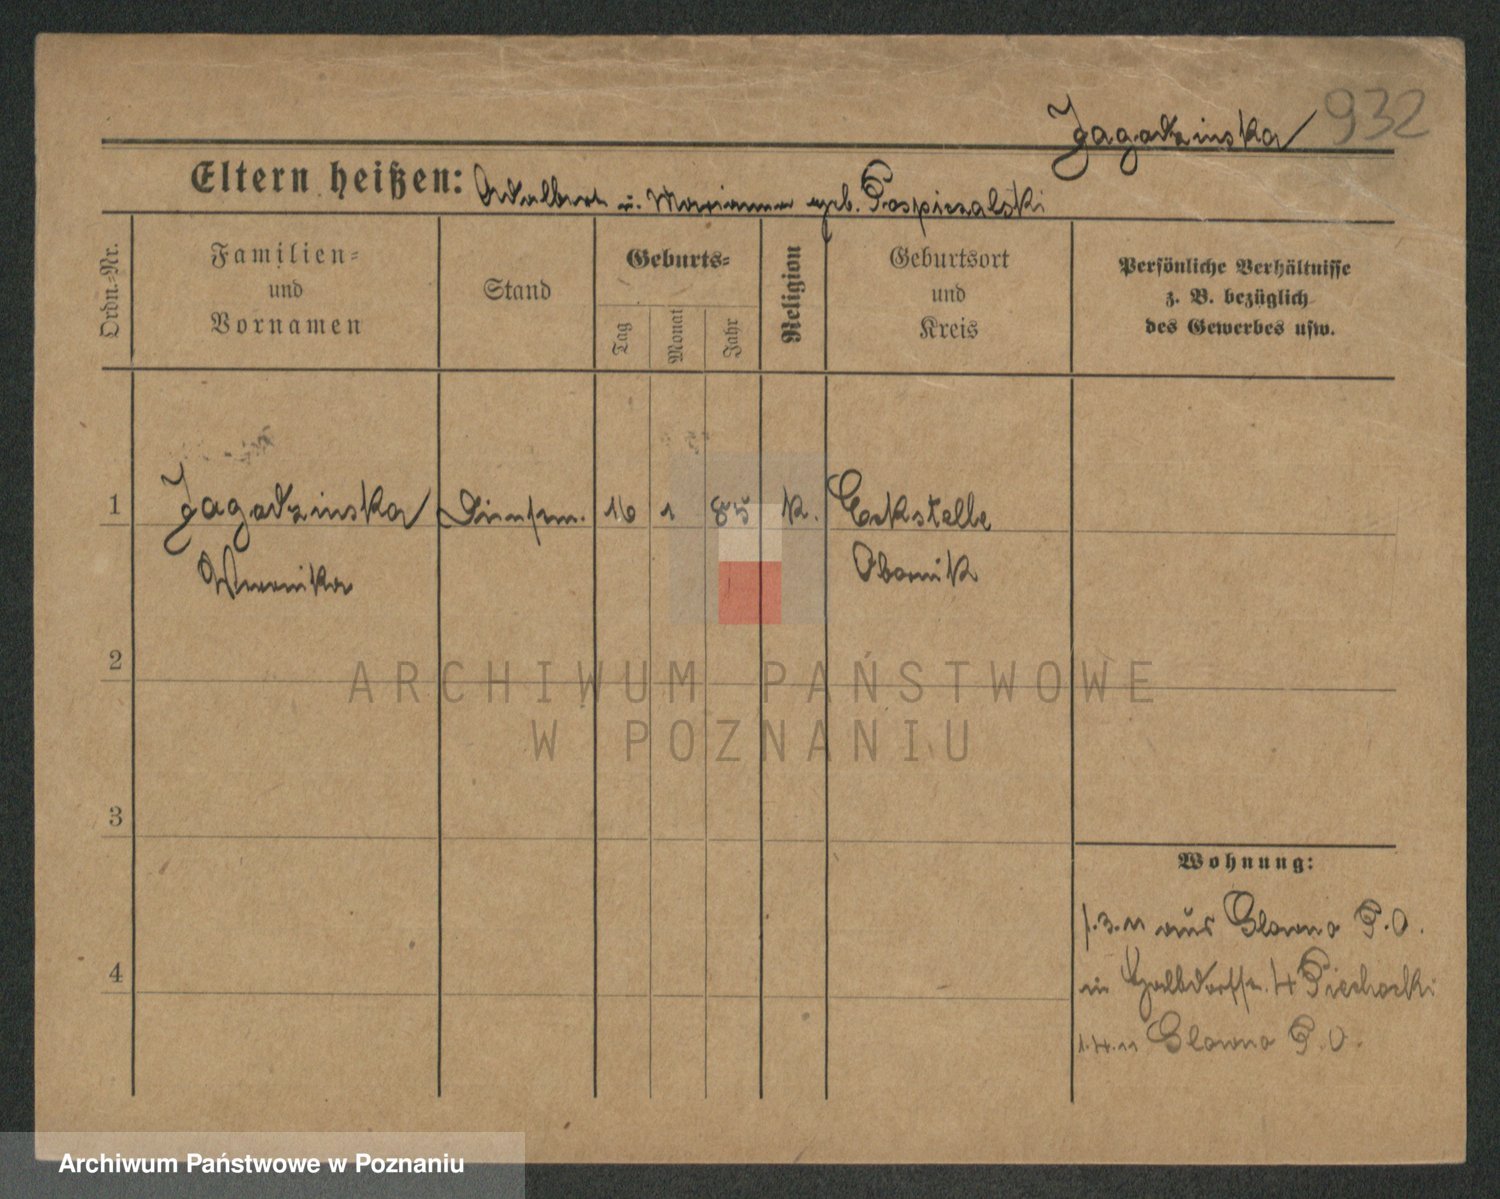 932
Jagadzinska
Eltern heißen: Adalbert u. Marianna geb. Pospieszalski
Ordn.-Nr.
Familien=
und
Vornamen
Stand
Geburts=
Tag
Monat
Jahr
Religion
Geburtsort
und
Kreis
Persönliche Verhältnisse
z. B. bezüglich
des Gewerbes usw.
1 Jagadzinska Dienstm. 16 1 85 k. Eckstelle
Weronika Obornik
2
ARCHIWUM PAŃSTWOWE
W POZNANIU
3
Wohnung:
1.3.11 aus Glowno P.O.
4
in Halbdorfstr. 4 Piechocki
1.4.11 Glowno P.O.
Archiwum Państwowe w Poznaniu